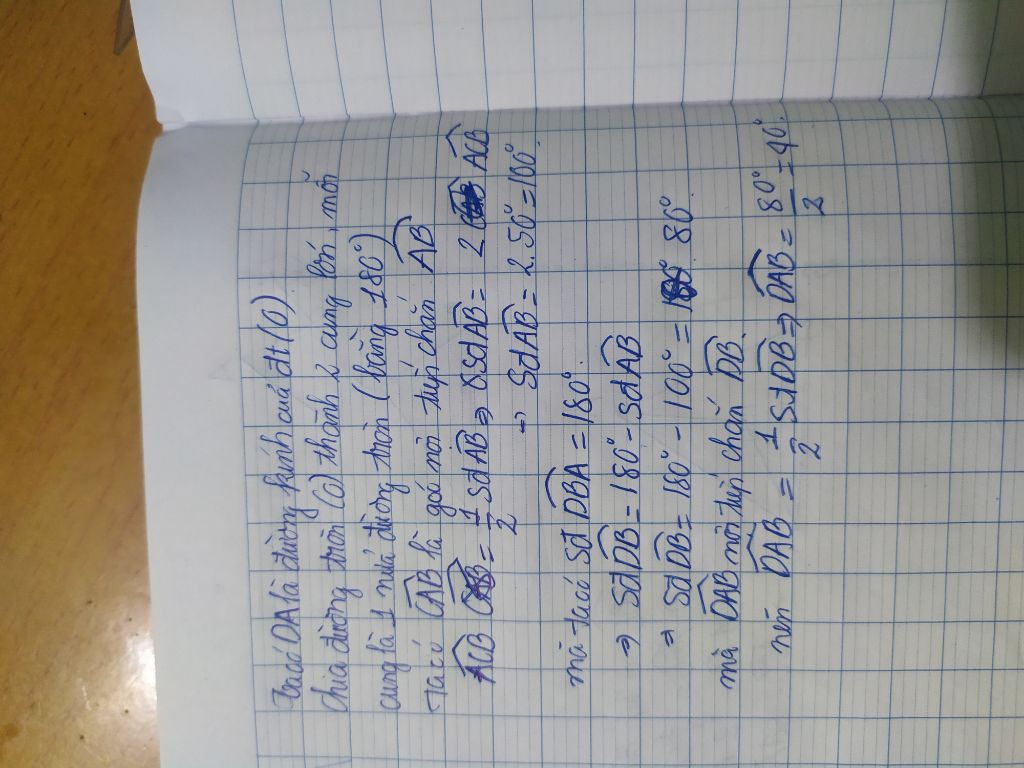 Ta có DA là đường kính của đt (O)
chia đường tròn (O) thành 2 cung lớn, mỗi
cung là 1 nửa đường tròn (bằng 180°)
Ta có CAB là góc nội tiếp chắn AB
ACB = 1/2 Sđ AB ⇒ Sđ AB = 2 ACB
→ Sđ AB = 2.50° = 100°.
mà ta có Sđ DBA = 180°.
⇒ Sđ DB = 180° - Sđ AB
⇒ Sđ DB = 180° - 100° = 80°
mà DAB nội tiếp chắn DB
nên DAB = 1/2 Sđ DB ⇒ DAB = 80°/2 = 40°.